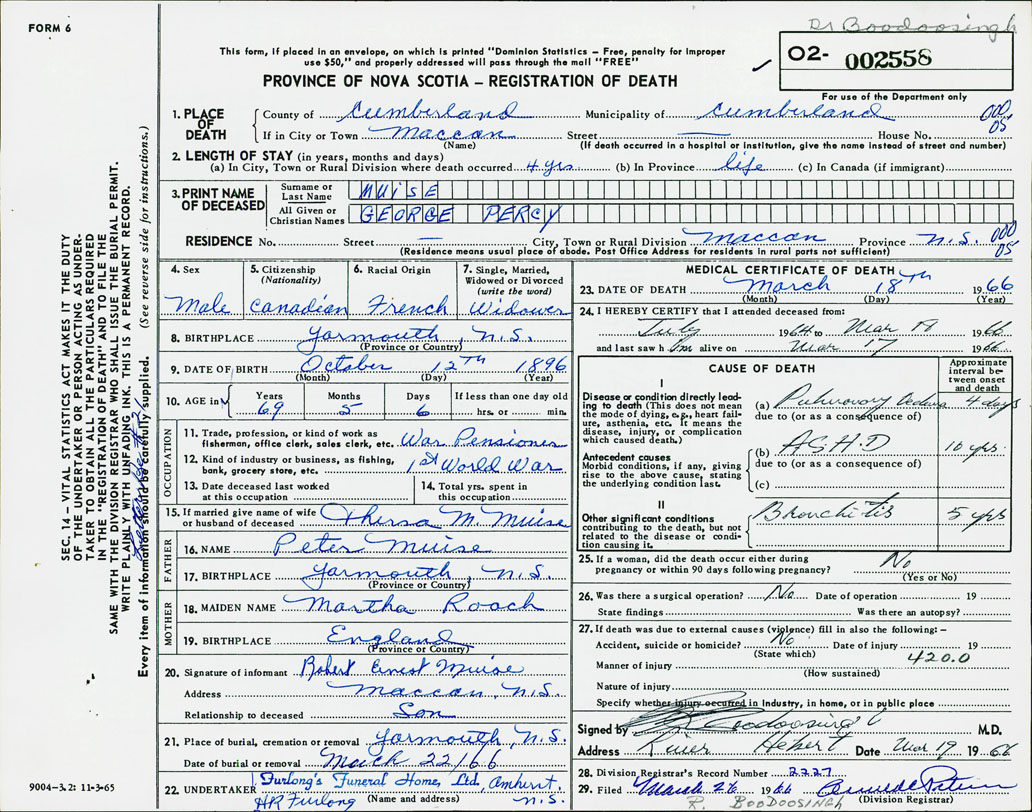 FORM 6
Dr Boodoosingh
This form, if placed in an envelope, on which is printed "Dominion Statistics – Free, penalty for improper
use $50," and properly addressed will pass through the mail "FREE"
O2- 002558
PROVINCE OF NOVA SCOTIA – REGISTRATION OF DEATH
For use of the Department only
1. PLACE OF DEATH
County of Cumberland Municipality of Cumberland 000
If in City or Town Maccan Street — House No. 05
(Name) (If death occurred in a hospital or Institution, give the name instead of street and number)
2. LENGTH OF STAY (in years, months and days)
(a) In City, Town or Rural Division where death occurred 4 yrs (b) In Province life (c) In Canada (if immigrant)
3. PRINT NAME OF DECEASED
Surname or Last Name MUISE
All Given or Christian Names GEORGE PERCY
RESIDENCE No. Street — City, Town or Rural Division Maccan Province N.S. 000 05
(Residence means usual place of abode. Post Office Address for residents in rural parts not sufficient)
4. Sex Male
5. Citizenship (Nationality) Canadian
6. Racial Origin French
7. Single, Married, Widowed or Divorced (write the word) Widower
8. BIRTHPLACE Yarmouth, N.S.
(Province or Country)
9. DATE OF BIRTH October 12TH 1896
(Month) (Day) (Year)
10. AGE in Years 69 Months 5 Days 6 If less than one day old hrs. or min.
OCCUPATION
11. Trade, profession, or kind of work as fisherman, office clerk, sales clerk, etc. War Pensioner
12. Kind of industry or business, as fishing, bank, grocery store, etc. 1st World War
13. Date deceased last worked at this occupation
14. Total yrs. spent in this occupation
15. If married give name of wife or husband of deceased Thersa M. Muise
FATHER
16. NAME Peter Muise
17. BIRTHPLACE Yarmouth, N.S.
(Province or Country)
MOTHER
18. MAIDEN NAME Martha Roach
19. BIRTHPLACE England
(Province or Country)
20. Signature of informant Robert Ernest Muise
Address Maccan, N.S.
Relationship to deceased Son
21. Place of burial, cremation or removal Yarmouth, N.S.
Date of burial or removal March 22/66
22. UNDERTAKER Furlong's Funeral Home, Ltd, Amherst, N.S.
HR Furlong (Name and address)
MEDICAL CERTIFICATE OF DEATH
23. DATE OF DEATH March 18TH 1966
(Month) (Day) (Year)
24. I HEREBY CERTIFY that I attended deceased from:
July 1964 to Mar 18 1966
and last saw him alive on Mar 17 1966
CAUSE OF DEATH
Approximate interval between onset and death
I
Disease or condition directly leading to death (This does not mean the mode of dying, e.g., heart failure, asthenia, etc. It means the disease, injury, or complication which caused death.)
(a) Pulmonary Oedema 4 days
due to (or as a consequence of)
Antecedent causes
Morbid conditions, if any, giving rise to the above cause, stating the underlying condition last.
(b) ASHD 10 yrs.
due to (or as a consequence of)
(c)
II
Other significant conditions contributing to the death, but not related to the disease or condition causing it.
Bronchitis 5 yrs
25. If a woman, did the death occur either during pregnancy or within 90 days following pregnancy? No
(Yes or No)
26. Was there a surgical operation? No Date of operation 19
State findings Was there an autopsy?
27. If death was due to external causes (violence) fill in also the following:–
Accident, suicide or homicide? No Date of injury 19
(State which) 420.0
Manner of injury
(How sustained)
Nature of injury
Specify whether injury occurred in Industry, in home, or in public place
Signed by Boodoosingh M.D.
Address River Hebert Date Mar 19 1966
28. Division Registrar's Record Number 2227
29. Filed March 26 1966
(Division Registrar)
R. BOODOOSINGH
SEC. 14 – VITAL STATISTICS ACT MAKES IT THE DUTY
OF THE UNDERTAKER OR PERSON ACTING AS UNDER-
TAKER TO OBTAIN ALL THE PARTICULARS REQUIRED
IN THE "REGISTRATION OF DEATH" AND TO FILE THE
SAME WITH THE DIVISION REGISTRAR WHO SHALL ISSUE THE BURIAL PERMIT.
WRITE PLAINLY WITH UNFADING INK. THIS IS A PERMANENT RECORD.
Every item of information should be carefully supplied. (See reverse side for instructions.)
9004–3.2: 11-3-65